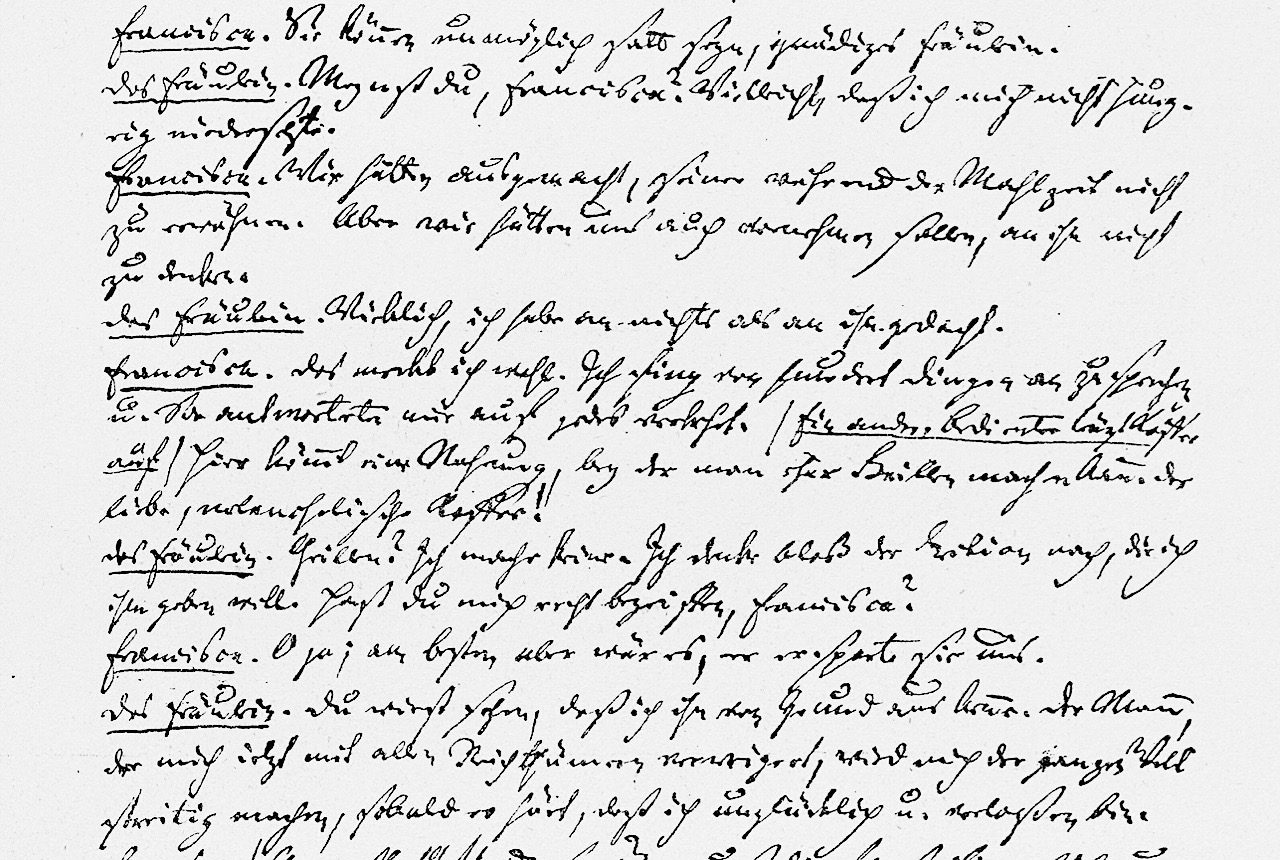 Francisca. Sie können unmöglich satt seyn, gnädiges Fräulein.
das Fräulein. Meynst du, Francisca? Vielleicht, daß ich mich nicht hung-
rig niedersetzte.
Francisca. Wir hatten ausgemacht, seiner während der Mahlzeit nicht
zu erwähnen. Aber wir hätten uns auch vornehmen sollen, an ihn nicht
zu denken.
das Fräulein. Wirklich, ich habe an nichts als an ihn gedacht.
Francisca. Das merkte ich wohl. Ich fing von hundert Dingen an zu sprechen
u. Sie antworteten mir auf jedes verkehrt. (Ein andrer Bedienter trägt Kaffee
auf) Hier kömmt eine Nahrung, bey der man eher Grillen machen kann. Der
liebe, melancholische Kaffee!
das Fräulein. Grillen? Ich mache keine. Ich denke bloß der Lection nach, die ich
ihm geben will. Hast du mich recht begriffen, Francisca?
Francisca. O ja; am besten aber wär es, er ersparte sie uns.
das Fräulein. Du wirst sehen, daß ich ihn von Grund aus kenne. Der Mann,
der mich jetzt mit allen Reichthümern verweigert, wird mich der ganzen Welt
streitig machen, sobald er hört, daß ich unglücklich u. verlassen bin.